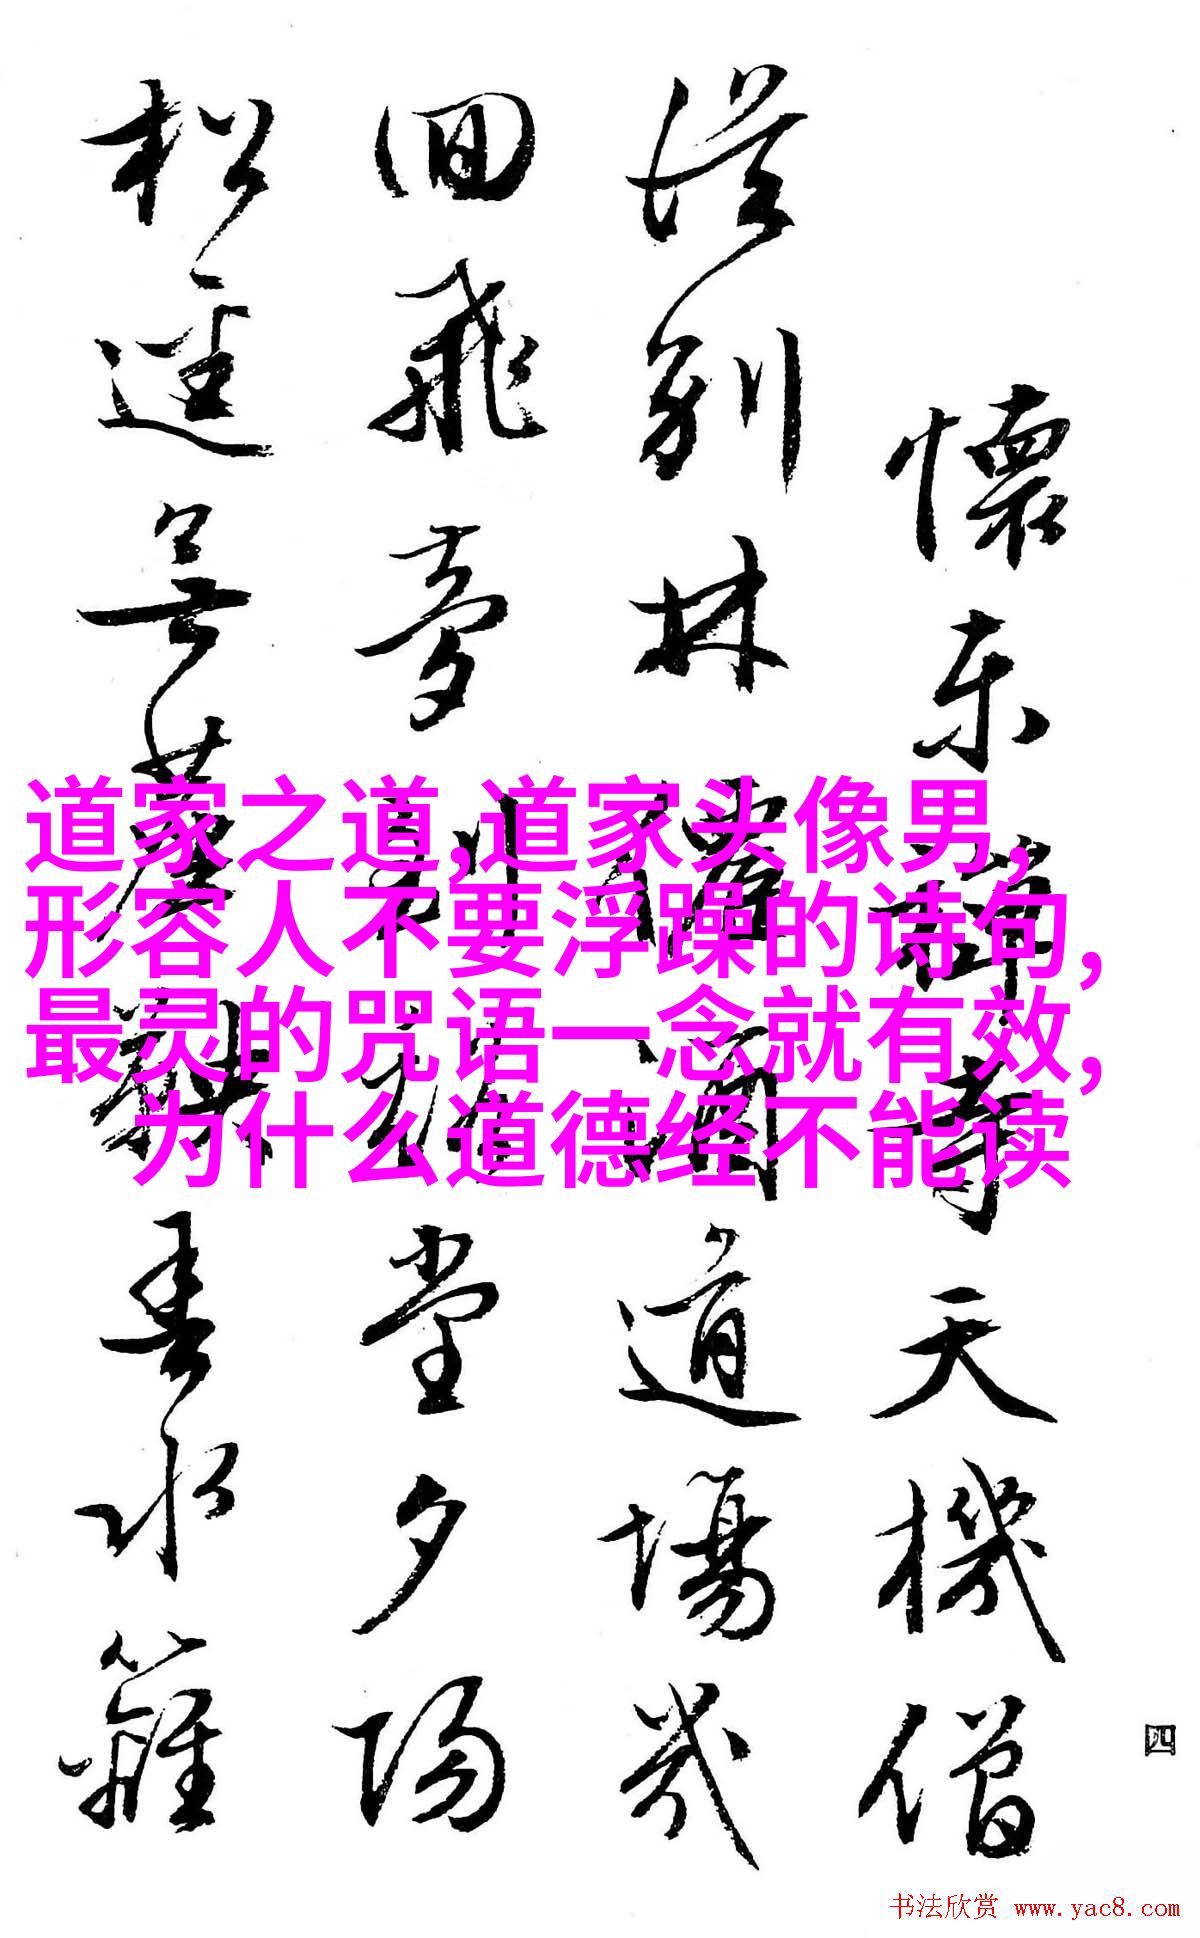 懷東禅寺天機僧
從別林道場幾
回飛夢堂夕陽
松逕無水籬
四
道家之道,道家头像男,
形容人不要浮躁的诗句,
最灵的咒语一念就有效,
为什么道德经不能读
书法欣赏 www.yac8.com